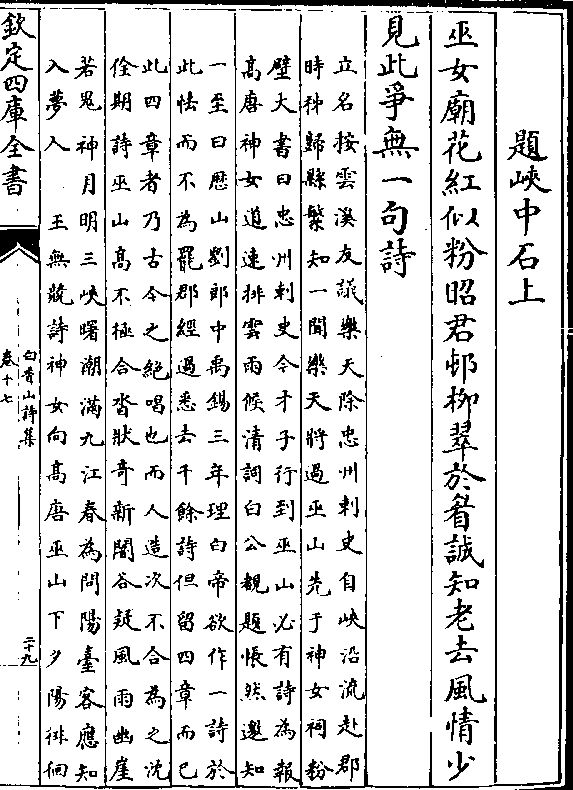 題峽中石上
巫女廟花紅似粉昭君邨柳翠於眉誠知老去風情少
見此爭無一句詩
立名按雲溪友議樂天除忠州刺史自峽沿流赴郡
時秭歸縣繁知一聞樂天將過巫山先于神女祠粉
壁大書曰忠州刺史今才子行到巫山必有詩為報
髙唐神女道速排雲雨候清詞白公覩題悵然邀知
一至曰歴山劉郎中禹錫三年理白帝欲作一詩於
此怯而不為罷郡經過悉去千餘詩但留四章而已
此四章者乃古今之絶唱也而人造次不合為之沈
佺期詩巫山髙不極合沓狀奇新闇谷疑風雨幽崖
若鬼神月明三峽曙潮滿九江春為問陽臺客應知
入夢人 王無兢詩神女向髙唐巫山下夕陽徘徊
欽定四庫全書
白香山詩集
卷十七
二十九